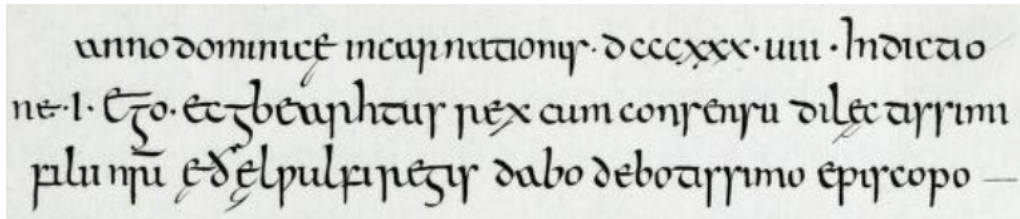 anno dominicę incarnationis · dcccxxx · uiii · Indictio
ne · I · Ego · ecgbearhtus rex cum consensu dilęctissimi
filii nr̄i ęðęlƿulfi regis dabo debotissimo episcopo —